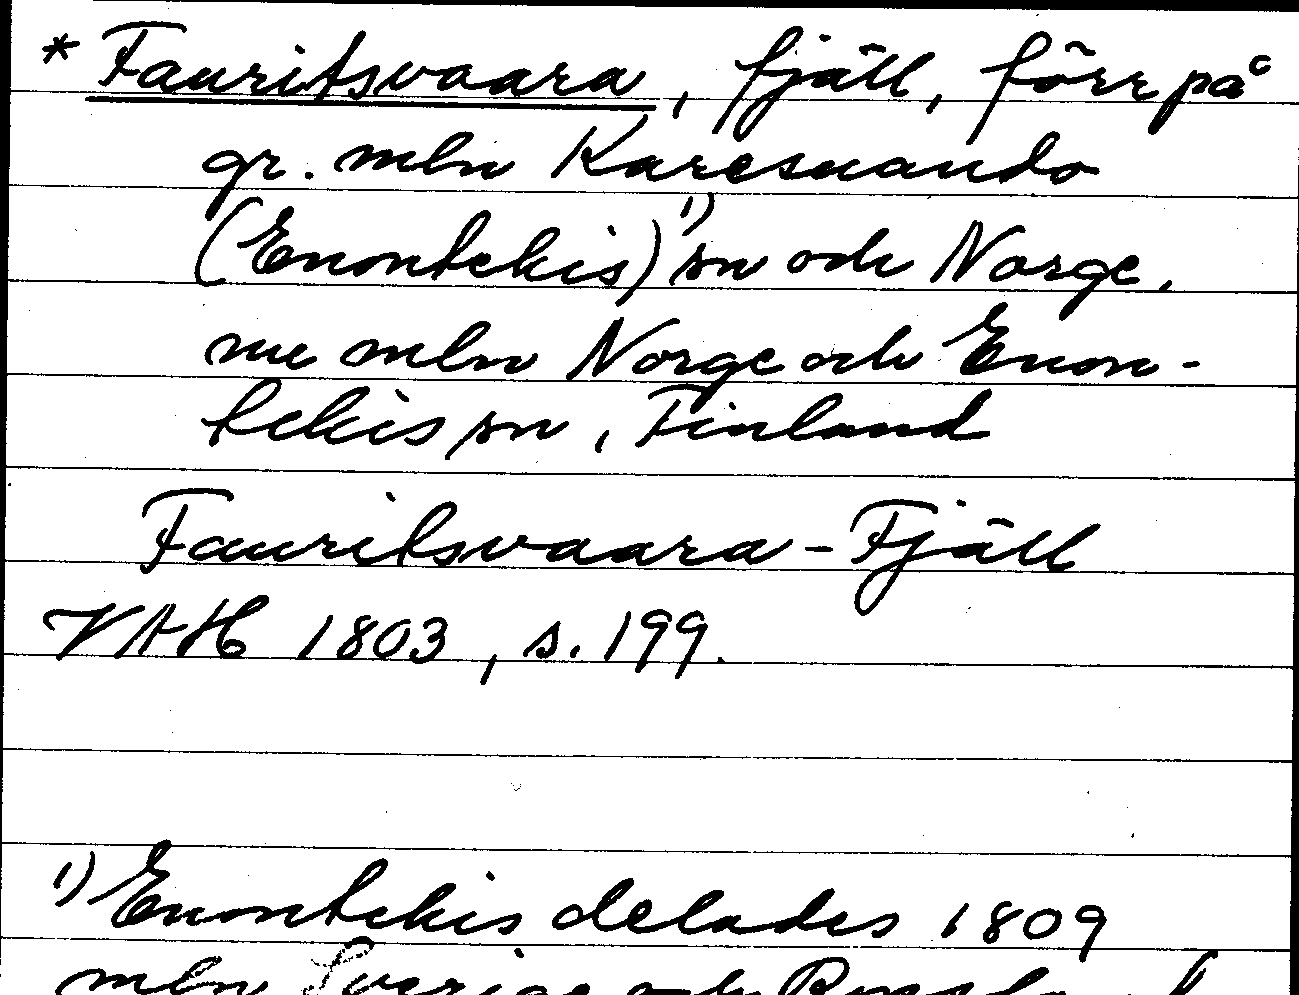 * Fauritsvaara, fjäll, förr på
gr. mln Karesuando
(Enontekis)¹⁾ sn och Norge,
nu mln Norge och Enon-
tekis sn, Finland
Fauritsvaara-Fjäll
VAH 1803, s. 199.
¹⁾ Enontekis delades 1809
mln Sverige och Ryssland